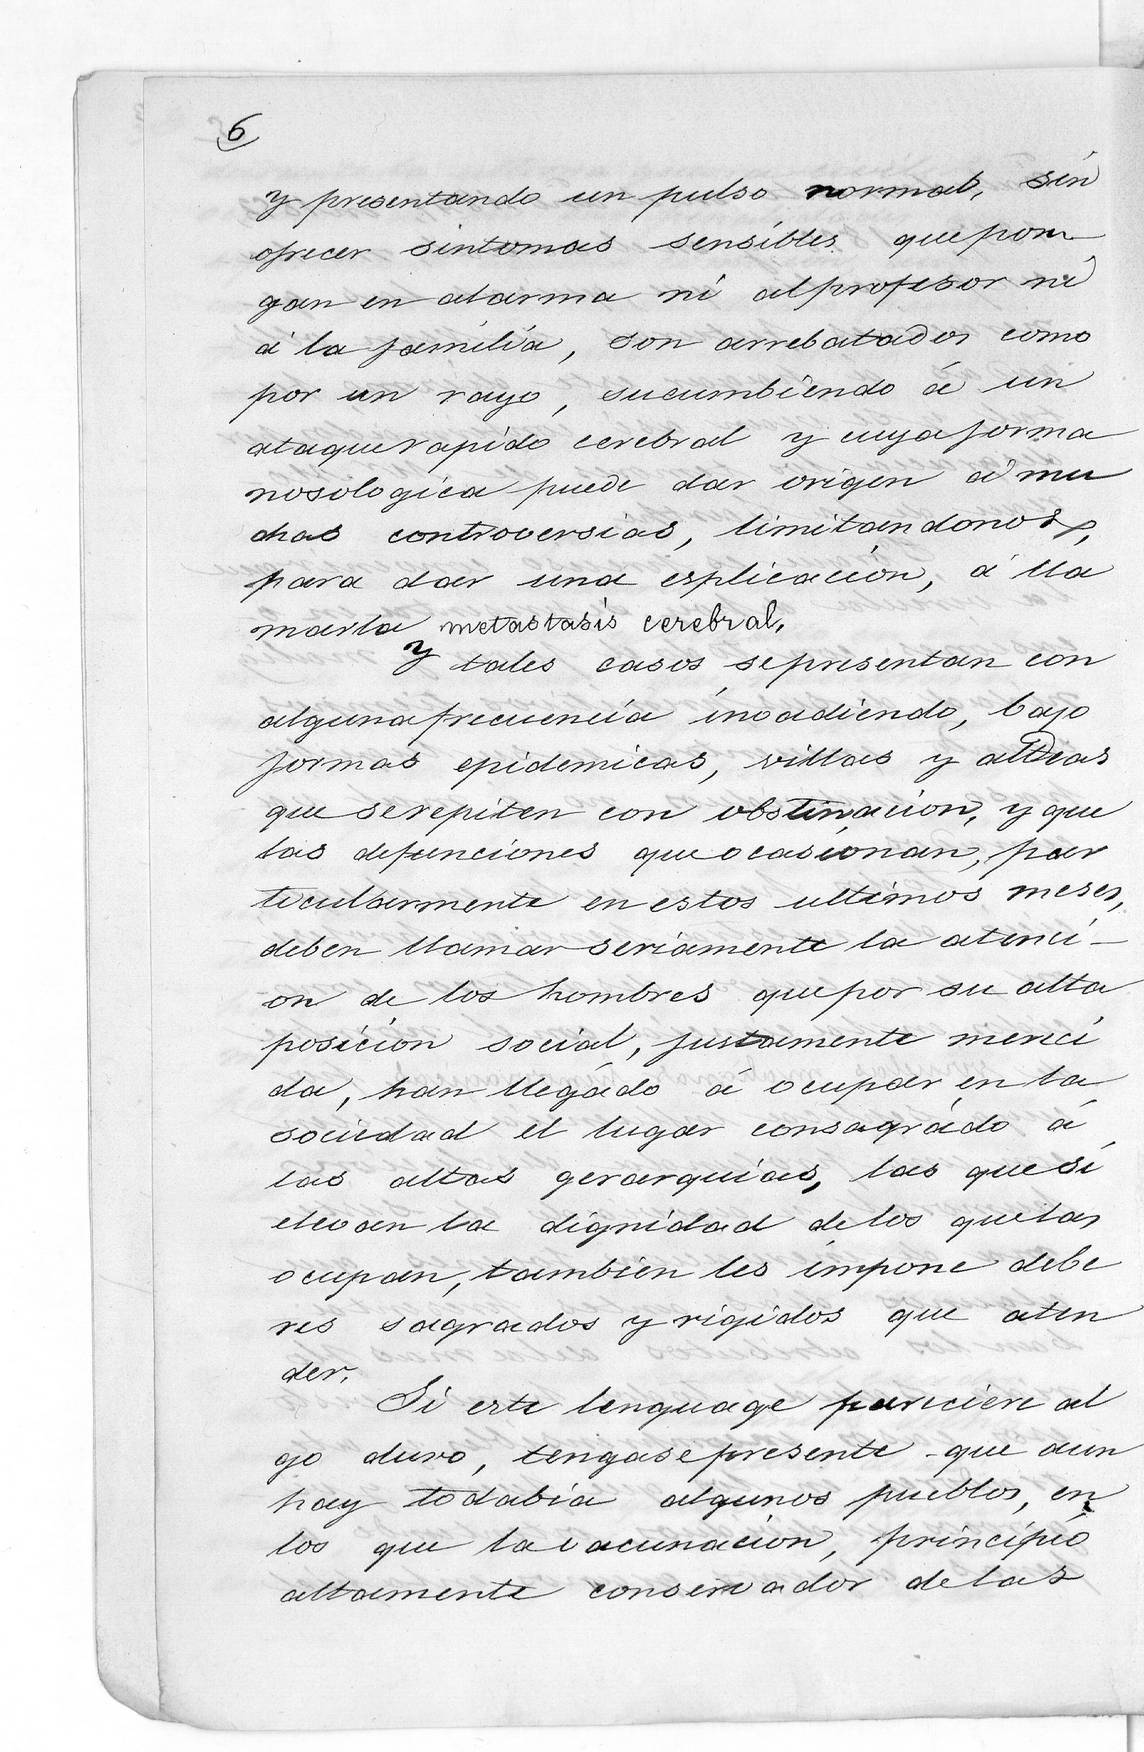 6
y presentando un pulso normal, sin
ofrecer sintomas sensibles que pon
gan en alarma ni al profesor ni
á la familia, son arrebatados como
por un rayo, sucumbiendo á un
ataque rapido cerebral y cuya forma
nosologica puede dar origen á mu
chas controversias, limitandonos,
para dar una esplicación, á lla
marla metastasis cerebral.
Y tales casos se presentan con
alguna frecuencia invadiendo, bajo
formas epidemicas, villas y aldeas
que se repiten con obstinacion, y que
las defunciones que ocasionan, par
ticularmente en estos ultimos meses,
deben llamar seriamente la atenci-
on de los hombres que por su alta
posicion social, justamente mereci
da, han llegádo á ocupar en la
sociedad el lugar consagrádo á
las altas gerarquias, las que si
elevan la dignidad de los que las
ocupan, tambien les impone debe
res sagrados y rigidos que aten
der.
Si este lenguage pareciere al
go duro, tengase presente que aun
hay todabia algunos pueblos, en
los que la vacunacion, principio
altamente conservador de las